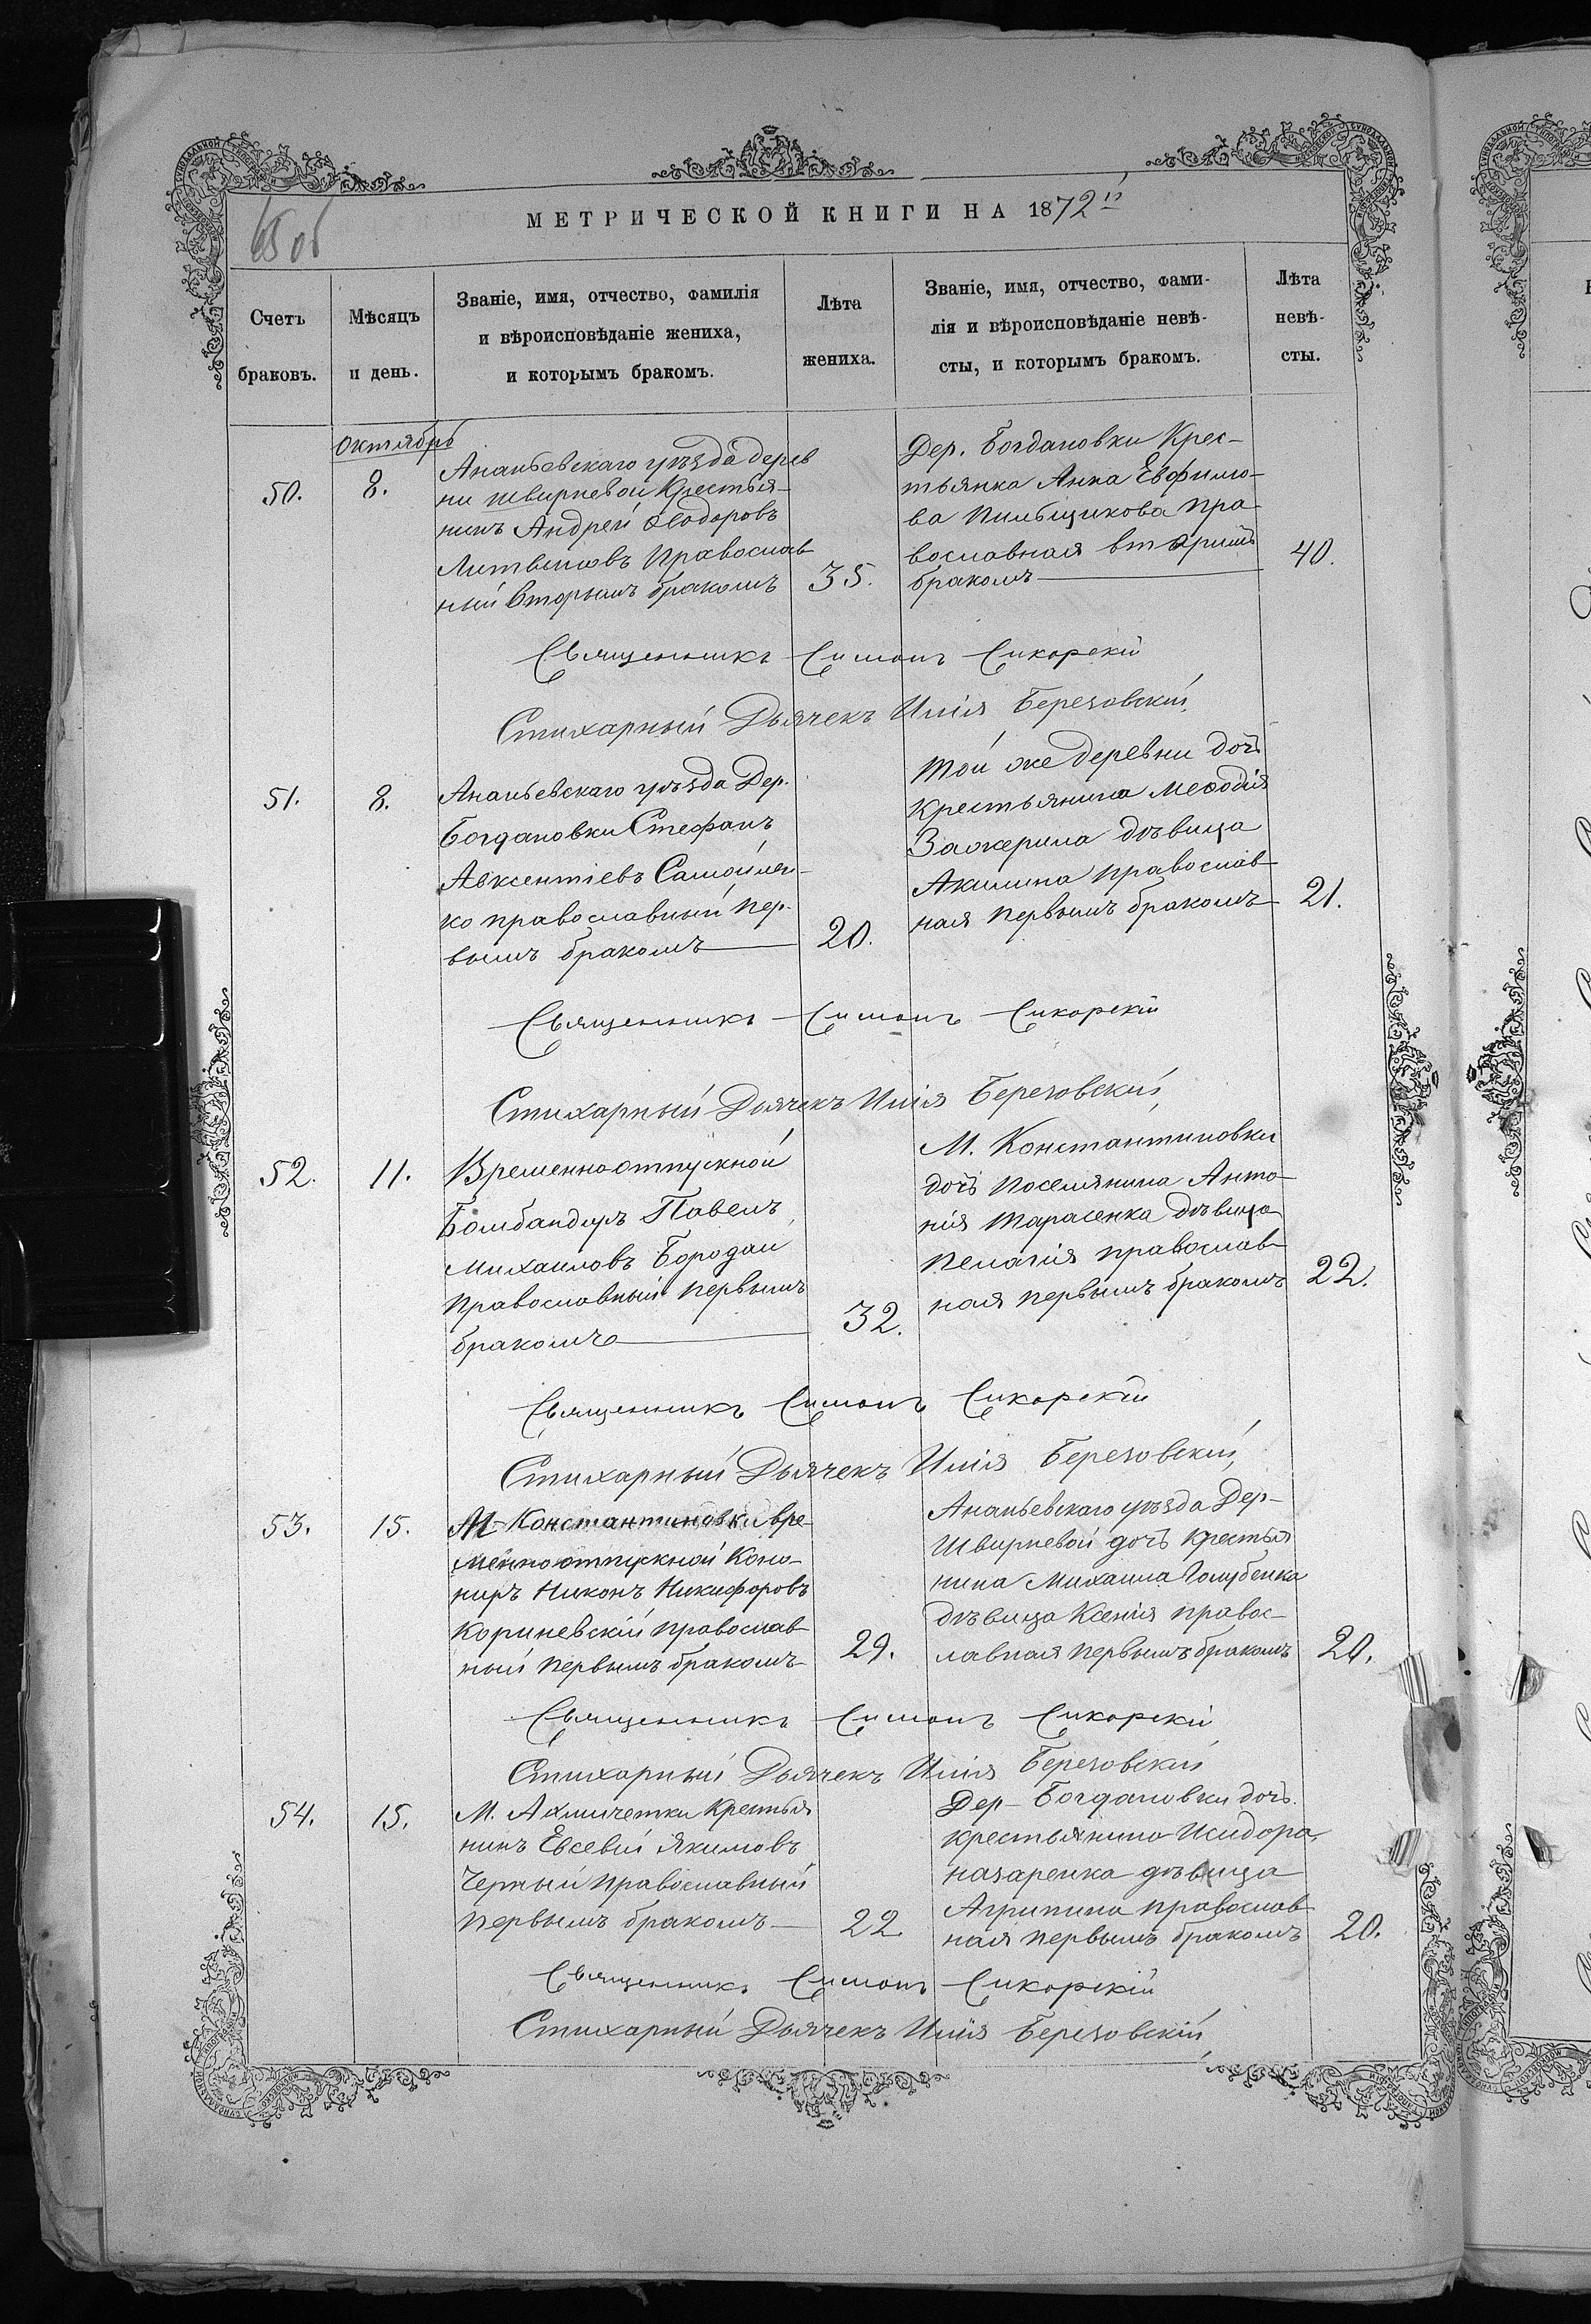 МЕТРИЧЕСКОЙ КНИГИ НА 1872й
65 об
Счетъ браковъ.
Мѣсяцъ и день.
Званіе, имя, отчество, фамилія
и вѣроисповѣданіе жениха,
и которымъ бракомъ.
Лѣта жениха.
Званіе, имя, отчество, фами-
лія и вѣроисповѣданіе невѣ-
сты, и которымъ бракомъ.
Лѣта невѣ-
сты.
Октябрь
50.
8.
Ананьевскаго уѣзда дерев
ни Швирневой Крестья-
нинъ Андрей Ѳеодоровъ
Литвиновъ Православ
ный вторымъ бракомъ
35.
Дер. Богдановки Крес-
тьянка Анна Евфимо-
ва Пильщикова пра
вославная вторымъ
бракомъ
40.
Священникъ Симонъ Сикорскій
Стихарный Дьячекъ Илія Березовскій
51.
8.
Ананьевскаго уѣзда Дер.
Богдановки Стефанъ
Авксентіевъ Самойлен-
ко православный пер-
вымъ бракомъ
20.
Той же деревни дочь
Крестьянина Меѳодія
Зажерила дѣвица
Акилина православ
ная первымъ бракомъ
21.
Священникъ Симонъ Сикорскій
Стихарный Дьячекъ Илія Березовскій
52.
11.
Временноотпускной
Бомбандиръ Павелъ
Михаиловъ Бородай
Православный первымъ
бракомъ
32.
М. Константиновки
дочь поселянина Анто-
нія Тарасенка дѣвица
Пелагія православ
ная первымъ бракомъ
22.
Священникъ Симонъ Сикорскій
Стихарный Дьячекъ Илія Березовскій
53.
15.
М. Константиновки вре-
менноотпускной Коно-
ниръ Никонъ Никифоровъ
Кориневскій православ
ный первымъ бракомъ
29.
Ананьевскаго уѣзда Дер-
Швирневой дочь крестья
нина Михаила Голубенка
дѣвица Ксенія правос-
лавная первымъ бракомъ
20.
Священникъ Симонъ Сикорскій
Стихарный Дьячекъ Илія Березовскій
54.
15.
М. Ахмичетки Крестья
нинъ Евсевій Якимовъ
Черный православный
первымъ бракомъ
22
Дер- Богдановки дочь
крестьянина Исидора
Назаренка дѣвица
Агрипина православ
ная первымъ бракомъ
20.
Священникъ Симонъ Сикорскій
Стихарный Дьячекъ Илія Березовскій